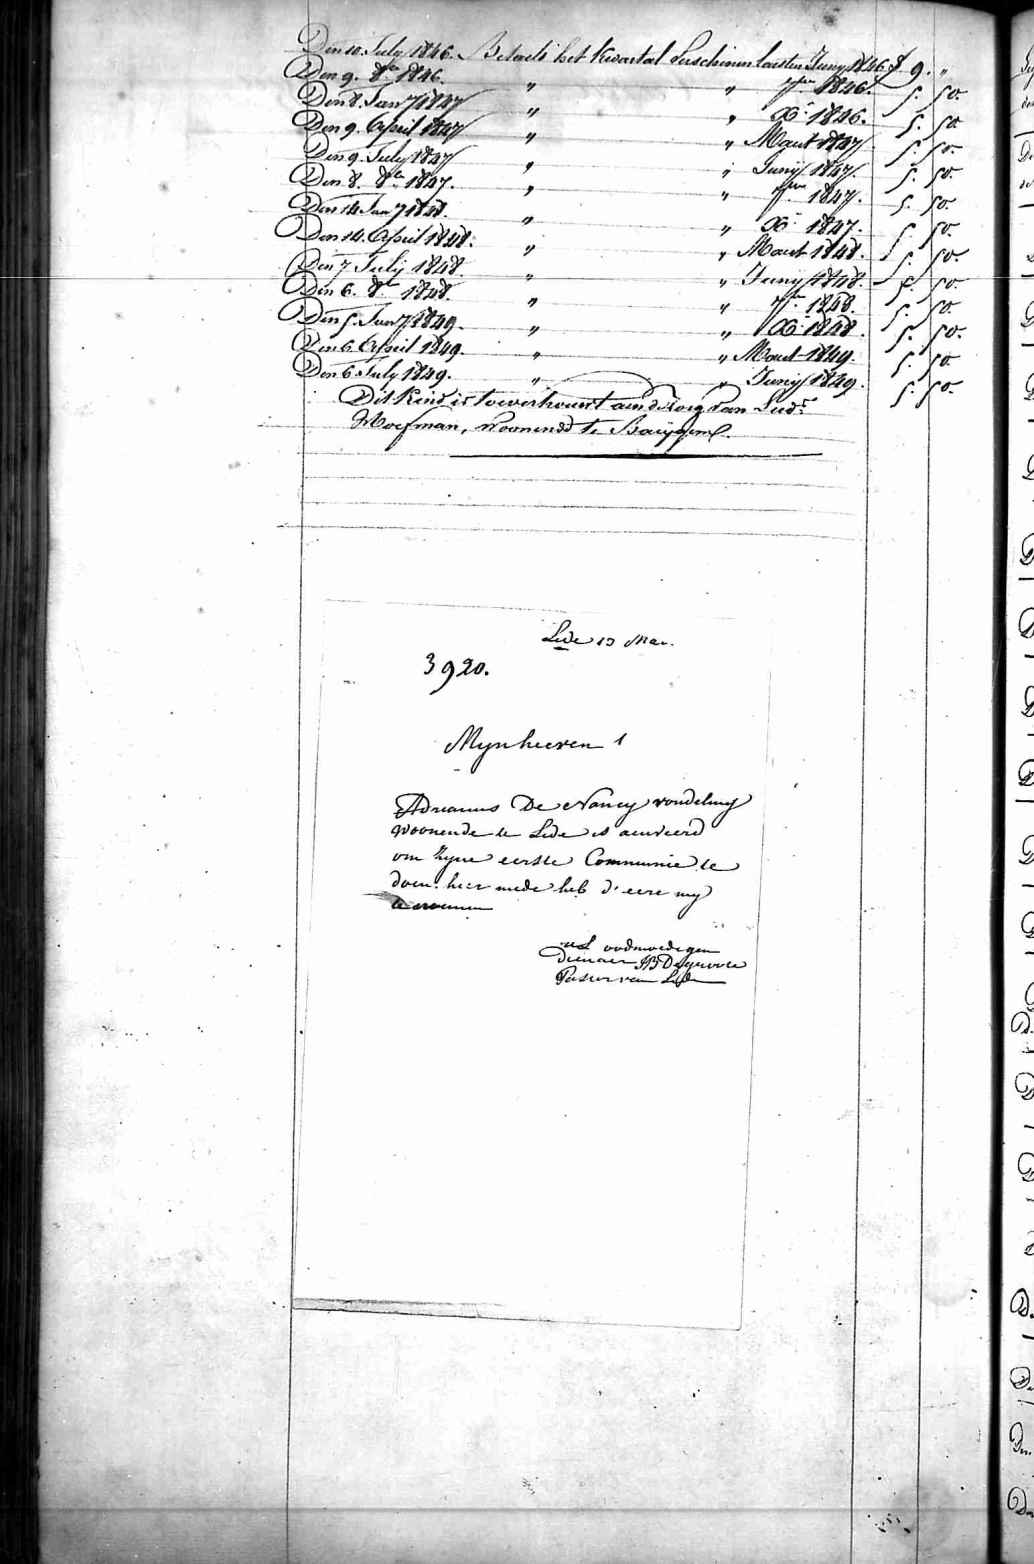 Den 10. July 1846. Betaelt het Kwartal Verschenen laisten Juny 1846. f. 9. "
Den 9. 8bre 1846. " " 7bre 1846. 5. 50.
Den 8. Jany 1847 " " Xbr 1846. 5. 50
Den 9. April 1847 " " Maart 1847 5. 50.
Den 9. July 1847 " " Juny 1847. 5. 50.
Den 8. 8bre 1847. " " 7bre 1847. 5. 50.
Den 14 Jany 1848. " " Xbr 1847. 5. 50.
Den 14. April 1848. " " Maart 1848. 5. 50.
Den 7 July 1848. " " Juny 1848. 5. 50.
Den 6. 8bre 1848. " " 7bre 1848. 5. 50.
Den 5. Jany 1849. " " Xbr 1848. 5. 50.
Den 6. April 1849. " " Maart 1849. 5. 50.
Den 6 July 1849. " " Juny 1849. 5. 50.
Dit Kind is toevertrouwt aen de zorg van
woonende te Baeygem.
Lede 13
3920.
Mynheeren
Adrianus De Nancy vondeling
woonende te Lede is aenveerd
om Zyne eerste Communie te
doen. hier mede heb d'eere my
te noemen
uL oodmoedigen
dienaer JB
Pastor van Lede